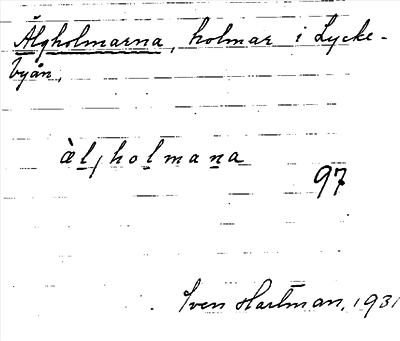 Älgholmarna, holmar i Lycke-
byån.
àljholmana
97
Iven Hartman, 1931